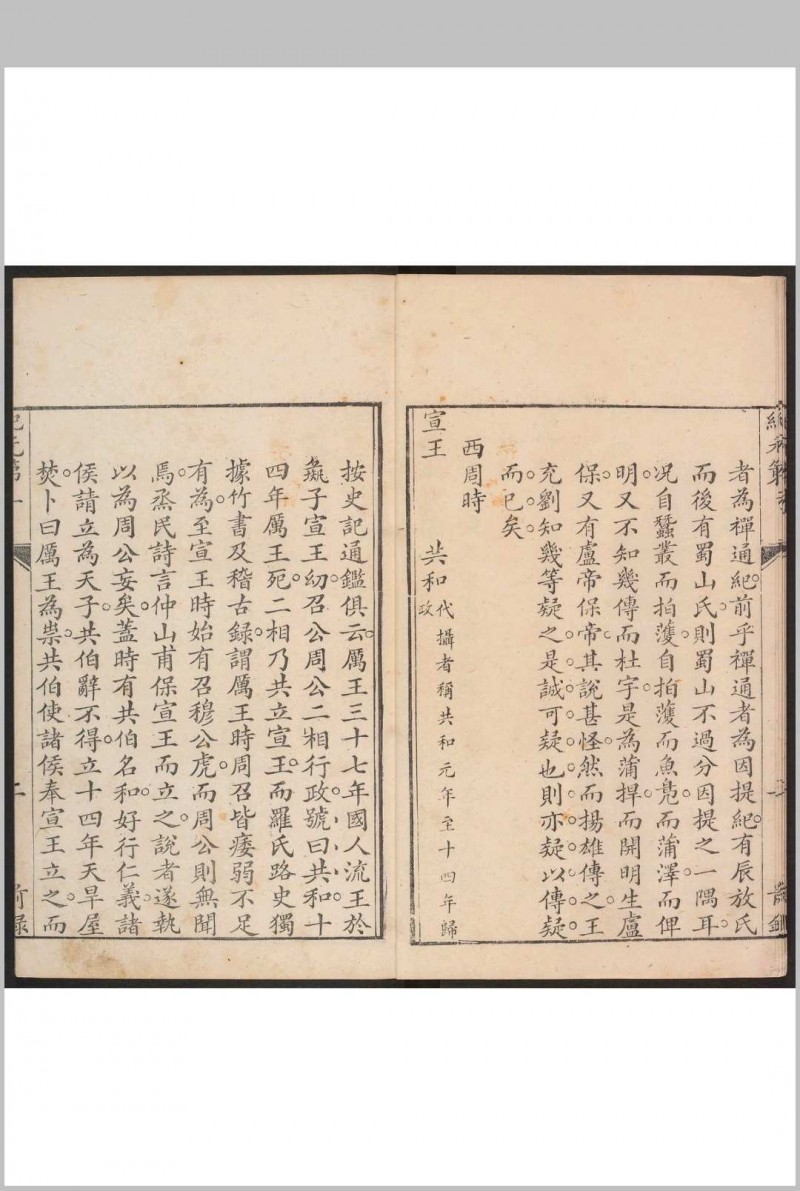 者為禪通紀前乎禪通者為因提紀有辰放氏
而後有蜀山氏則蜀山不過分因提之一隅耳
况自蠶叢而拍濩自拍濩而魚鳧而蒲澤而俾
明又不知幾傳而杜宇是為蒲捍而開明生盧
保又有盧帝保帝其說甚怪然而揚雄傳之王
充劉知幾等疑之是誠可疑也則亦疑以傳疑
而已矣
西周時
宣王 共和代攝者稱共和元年至十四年歸政
按史記通鑑俱云厲王三十七年國人流王於
彘子宣王幼召公周公二相行政號曰共和十
四年厲王死二相乃共立宣王而羅氏路史獨
據竹書及稽古録謂厲王時周召皆痿弱不足
有為至宣王時始有召穆公虎而周公則無聞
焉烝民詩言仲山甫保宣王而立之說者遂執
以為周公妄矣蓋時有共伯名和好行仁義諸
侯請立為天子共伯辭不得立十四年天旱屋
焚卜曰厲王為祟共伯使諸侯奉宣王立之而
紀元第一 二 前録